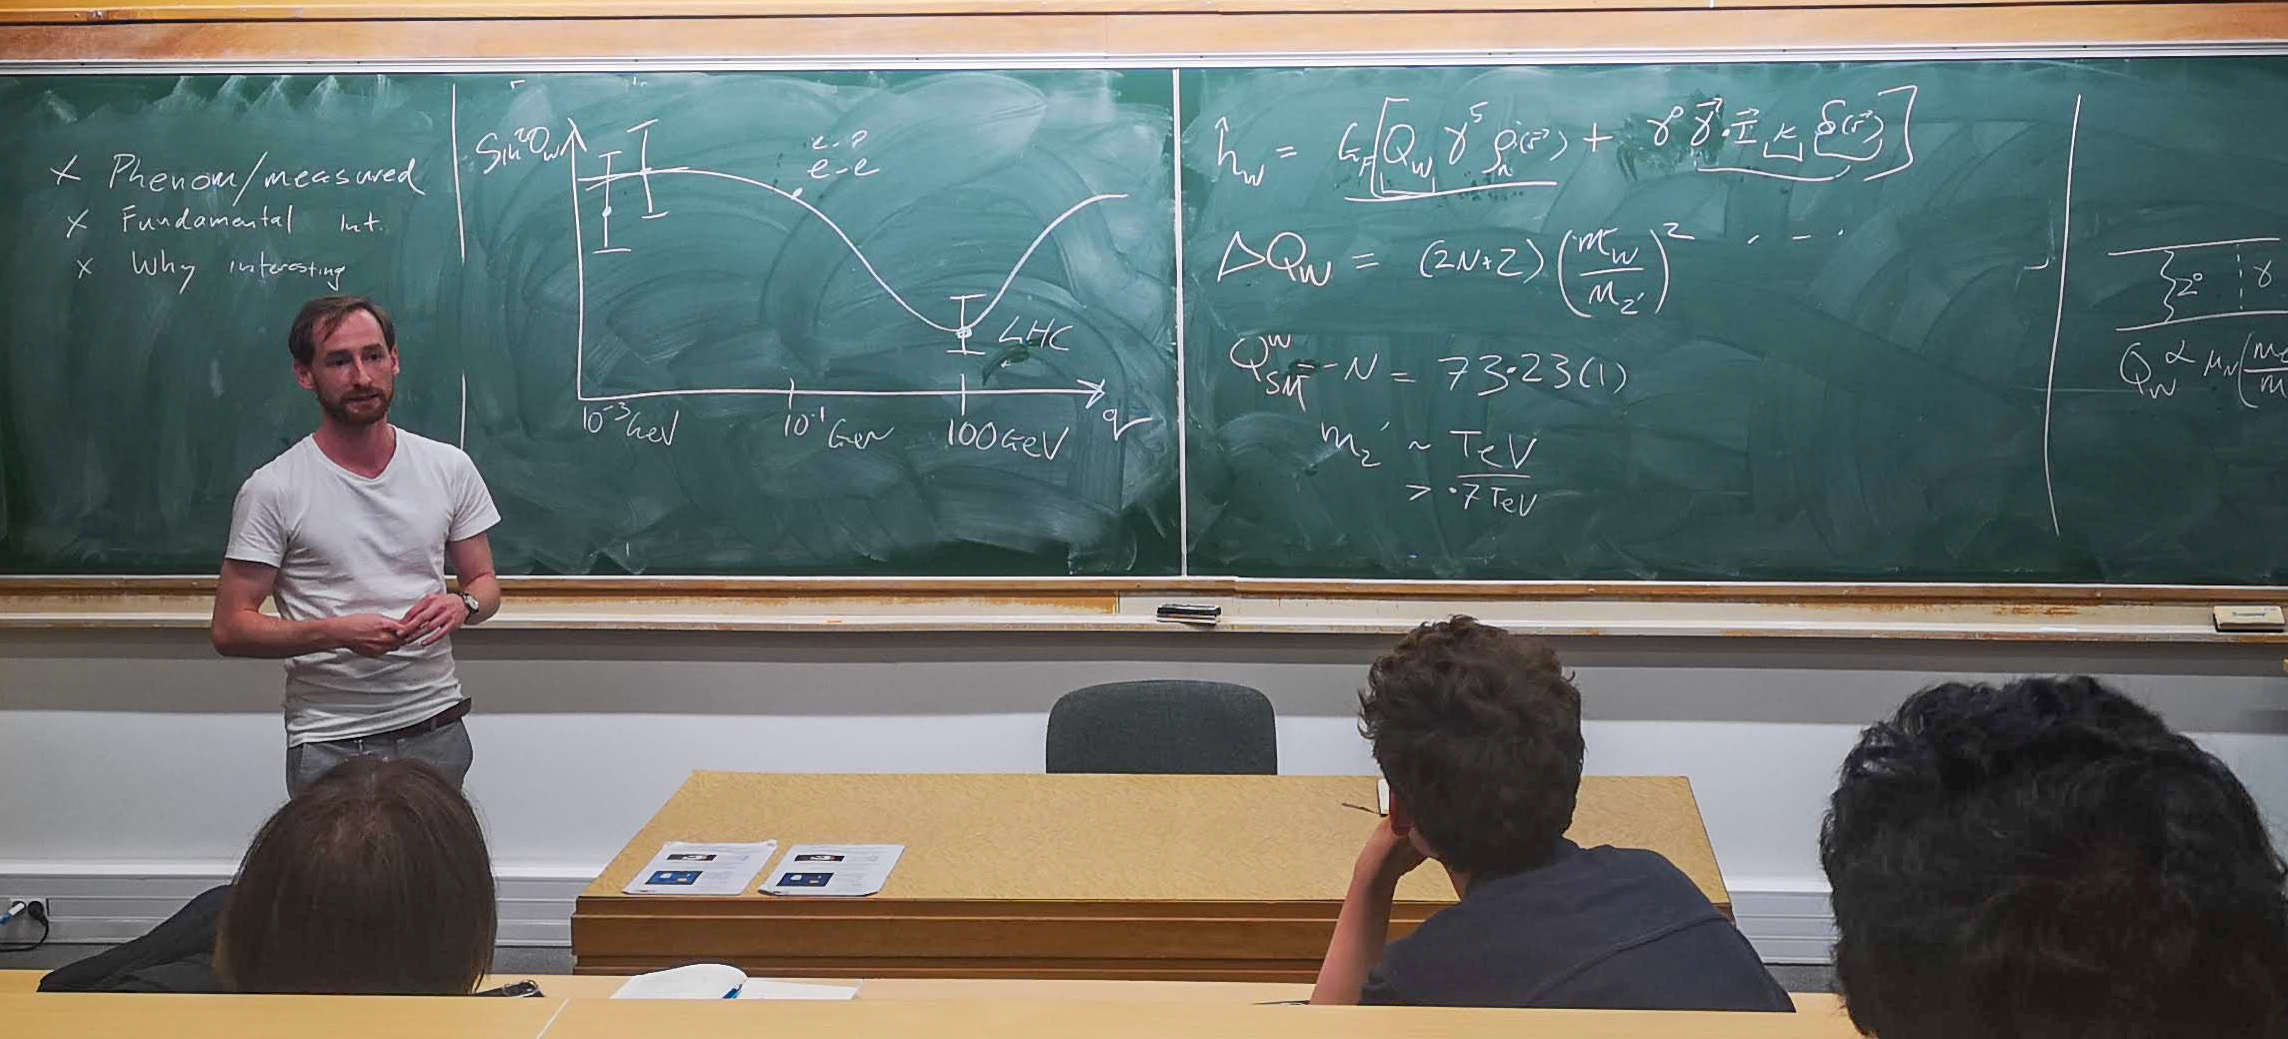 x Phenom/measured
x Fundamental Int.
x Why interesting
Sin²θw
e-p
e-e
LHC
10⁻³GeV
10⁻¹GeV
100GeV
q
ĥ_W = G_F[Q_W γ⁵ρ(r⃗) + γ⁰γ⃗·I⃗ κ δ(r⃗)]
ΔQ_W = (2N+Z)(m_W/M_Z')² ...
Q^W_SM ≈ -N = 73.23(1)
m_Z' ~ TeV
> .7 TeV
Z⁰ γ
Q_W ∝ μ_N